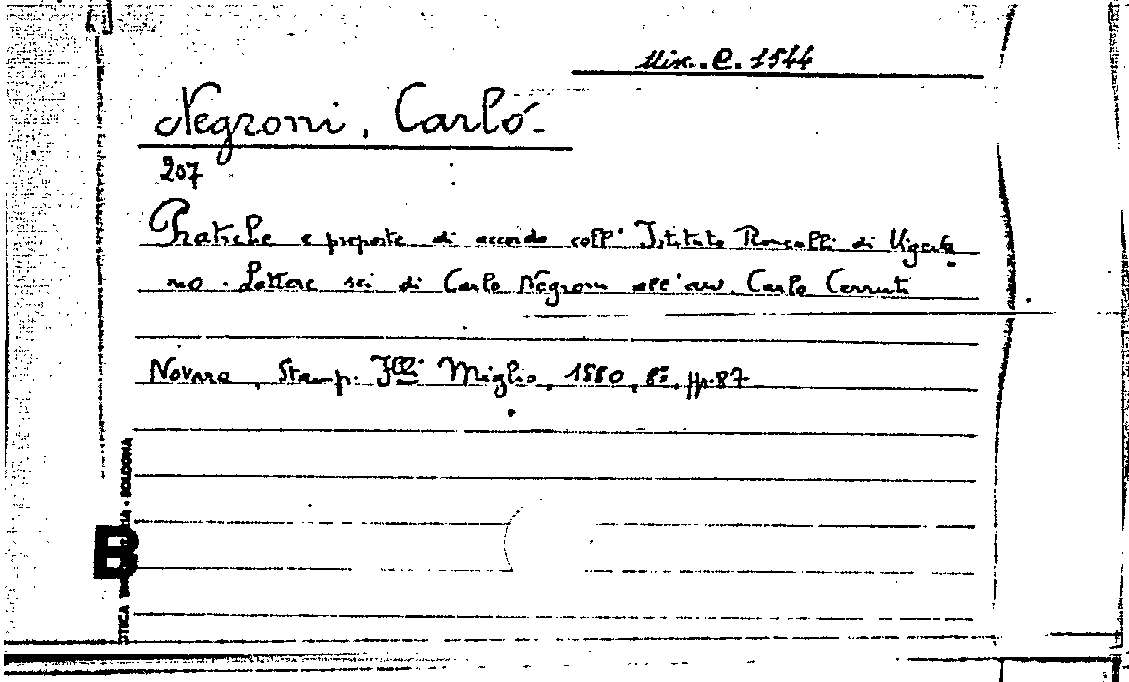 Misc. C. 1544
Negroni, Carlo -
207
Pratiche e proposte di accordo coll' Istituto Roncalli di Vigeva
no - Lettere sei di Carlo Negroni all'avv. Carlo Cerruti
Novara, Stamp. Flli Miglio, 1880, 8º, pp. 87
B
OTICA BOLOGNA